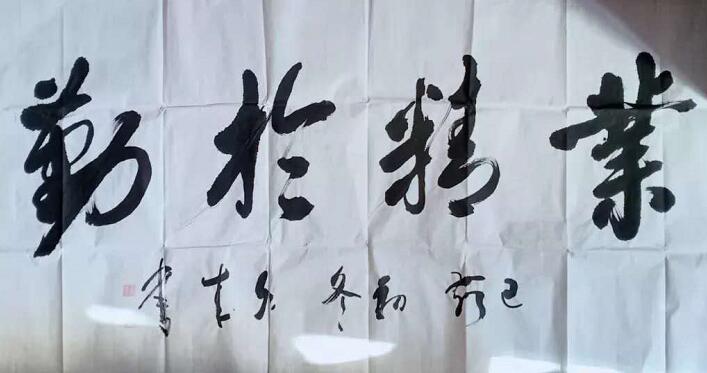 業精於勤
己亥初冬
書